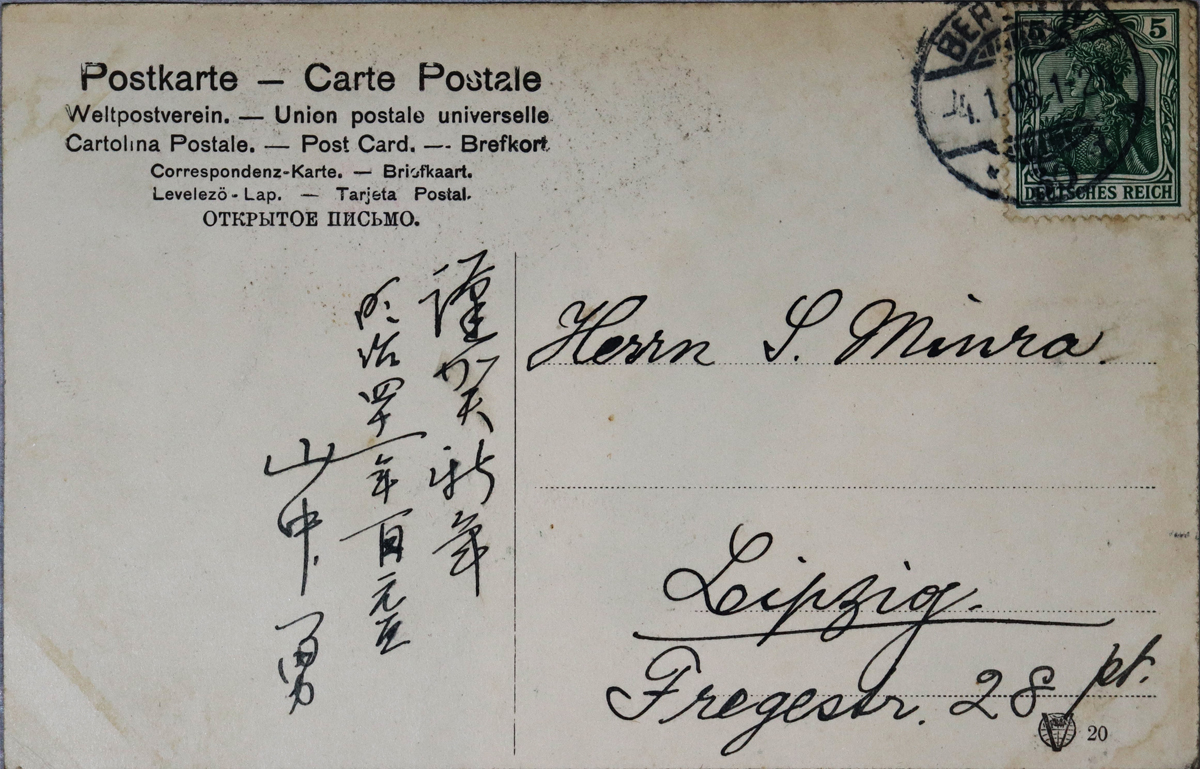 Postkarte — Carte Postale
Weltpostverein. — Union postale universelle
Cartolina Postale. — Post Card. — Brefkort
Correspondenz-Karte. — Briefkaart.
Levelező-Lap. — Tarjeta Postal.
ОТКРЫТОЕ ПИСЬМО.
5
4.1.08.1-2
DEUTSCHES REICH
謹賀新年
明治四十一年一月元旦
山中 勇
Herrn S. Miura.
Leipzig.
Fregestr. 28 pt.
20